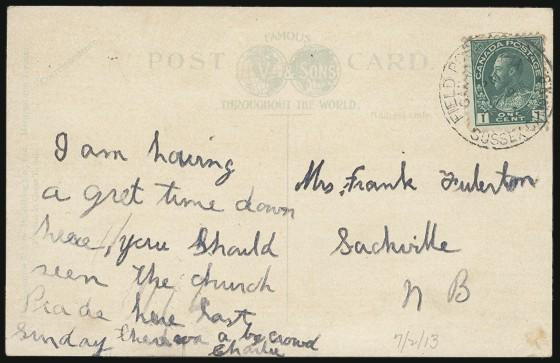 FAMOUS
POST CARD.
V & SONS
THROUGHOUT THE WORLD.
FIELD
SUSSEX
CANADA POSTAGE
1 ONE CENT 1
I am having
a gret time down
here, you should
seen the church
Prade here last
Sunday there wa a big crowd
Charlie
Mrs. Frank Fulerton
Sackville
N B
7/2/13